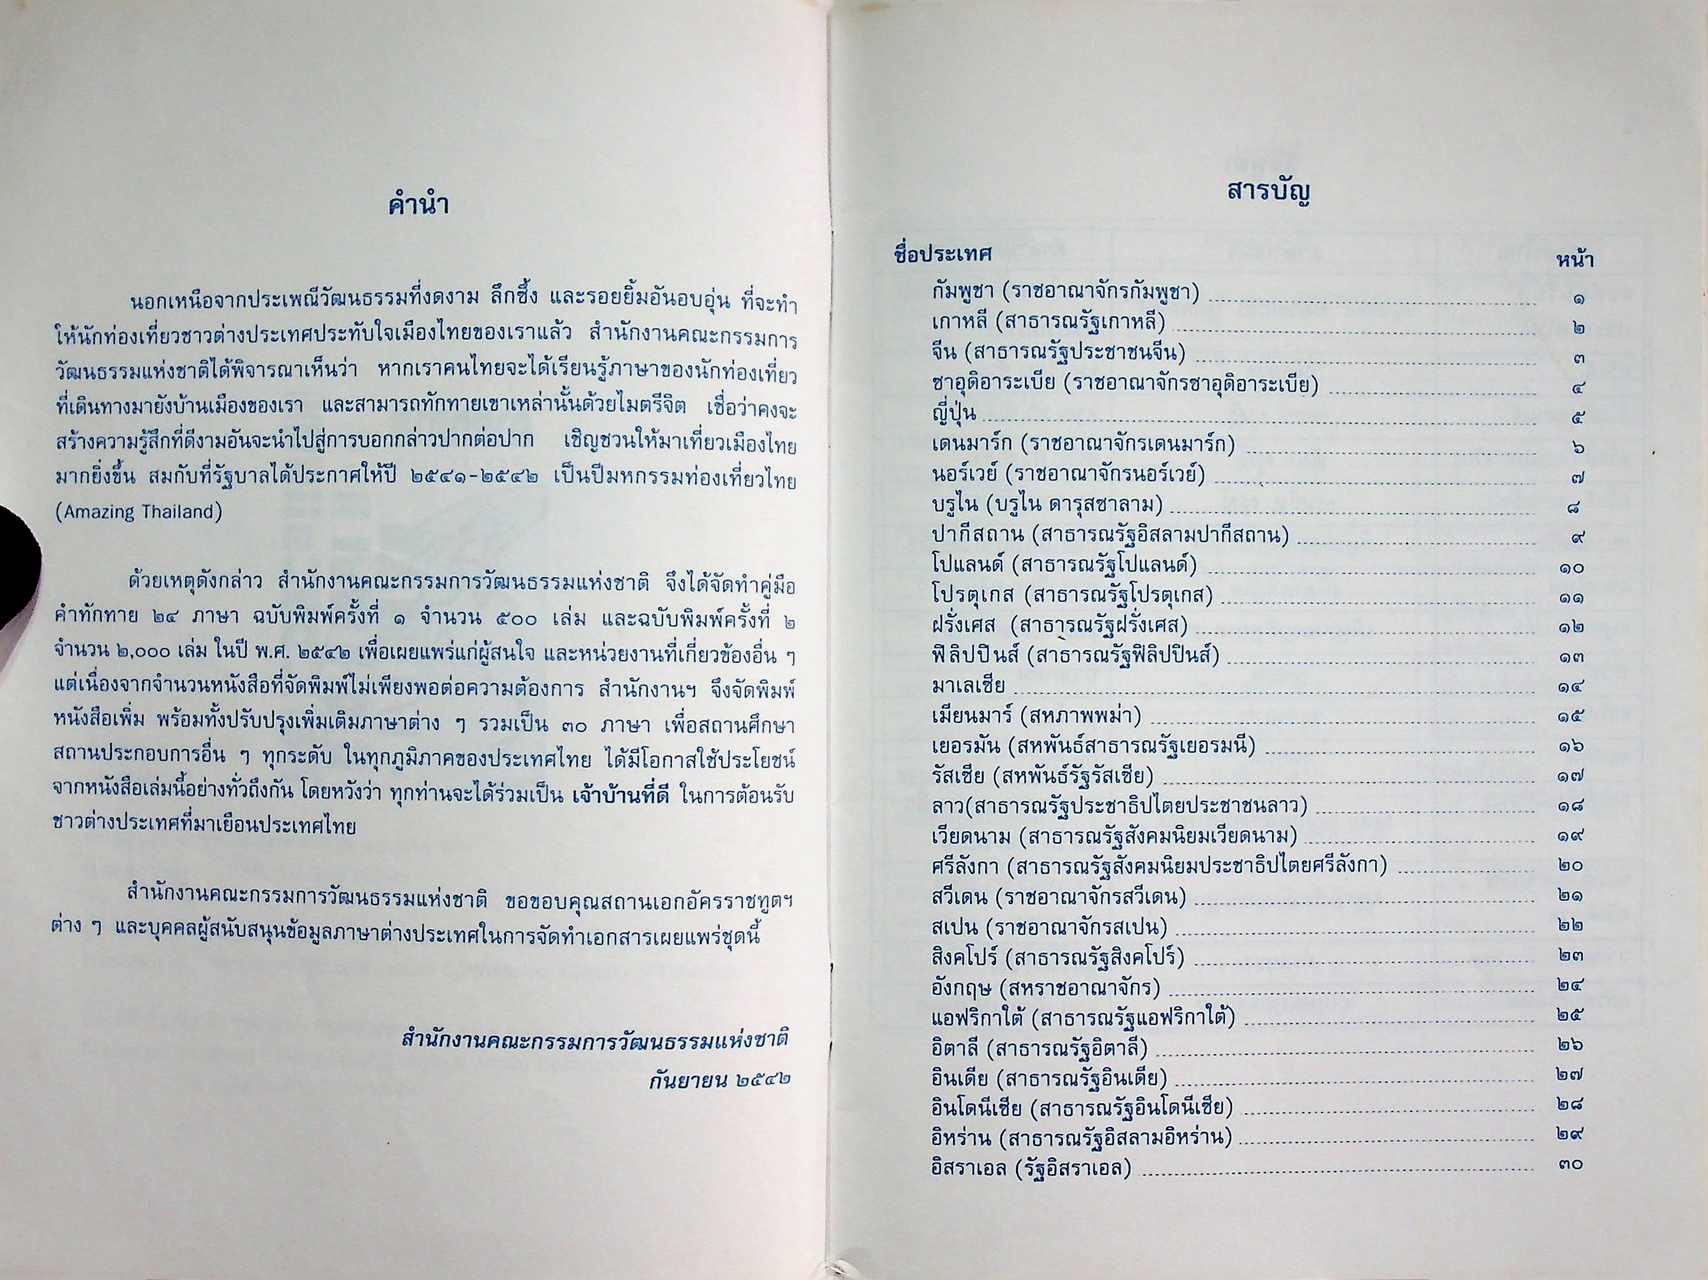 คำนำ
นอกเหนือจากประเพณีวัฒนธรรมที่งดงาม ลึกซึ้ง และรอยยิ้มอันอบอุ่น ที่จะทำ
ให้นักท่องเที่ยวชาวต่างประเทศประทับใจเมืองไทยของเราแล้ว สำนักงานคณะกรรมการ
วัฒนธรรมแห่งชาติได้พิจารณาเห็นว่า หากเราคนไทยจะได้เรียนรู้ภาษาของนักท่องเที่ยว
ที่เดินทางมายังบ้านเมืองของเรา และสามารถทักทายเขาเหล่านั้นด้วยไมตรีจิต เชื่อว่าคงจะ
สร้างความรู้สึกที่ดีงามอันจะนำไปสู่การบอกกล่าวปากต่อปาก เชิญชวนให้มาเที่ยวเมืองไทย
มากยิ่งขึ้น สมกับที่รัฐบาลได้ประกาศให้ปี ๒๕๔๑-๒๕๔๒ เป็นปีมหกรรมท่องเที่ยวไทย
(Amazing Thailand)
ด้วยเหตุดังกล่าว สำนักงานคณะกรรมการวัฒนธรรมแห่งชาติ จึงได้จัดทำคู่มือ
คำทักทาย ๒๔ ภาษา ฉบับพิมพ์ครั้งที่ ๑ จำนวน ๕๐๐ เล่ม และฉบับพิมพ์ครั้งที่ ๒
จำนวน ๒,๐๐๐ เล่ม ในปี พ.ศ. ๒๕๔๒ เพื่อเผยแพร่แก่ผู้สนใจ และหน่วยงานที่เกี่ยวข้องอื่น ๆ
แต่เนื่องจากจำนวนหนังสือที่จัดพิมพ์ไม่เพียงพอต่อความต้องการ สำนักงานฯ จึงจัดพิมพ์
หนังสือเพิ่ม พร้อมทั้งปรับปรุงเพิ่มเติมภาษาต่าง ๆ รวมเป็น ๓๐ ภาษา เพื่อสถานศึกษา
สถานประกอบการอื่น ๆ ทุกระดับ ในทุกภูมิภาคของประเทศไทย ได้มีโอกาสใช้ประโยชน์
จากหนังสือเล่มนี้อย่างทั่วถึงกัน โดยหวังว่า ทุกท่านจะได้ร่วมเป็น เจ้าบ้านที่ดี ในการต้อนรับ
ชาวต่างประเทศที่มาเยือนประเทศไทย
สำนักงานคณะกรรมการวัฒนธรรมแห่งชาติ ขอขอบคุณสถานเอกอัครราชทูตฯ
ต่าง ๆ และบุคคลผู้สนับสนุนข้อมูลภาษาต่างประเทศในการจัดทำเอกสารเผยแพร่ชุดนี้
สำนักงานคณะกรรมการวัฒนธรรมแห่งชาติ
กันยายน ๒๕๔๒
สารบัญ
ชื่อประเทศ หน้า
กัมพูชา (ราชอาณาจักรกัมพูชา) ๑
เกาหลี (สาธารณรัฐเกาหลี) ๒
จีน (สาธารณรัฐประชาชนจีน) ๓
ซาอุดิอาระเบีย (ราชอาณาจักรซาอุดิอาระเบีย) ๔
ญี่ปุ่น ๕
เดนมาร์ก (ราชอาณาจักรเดนมาร์ก) ๖
นอร์เวย์ (ราชอาณาจักรนอร์เวย์) ๗
บรูไน (บรูไน ดารุสซาลาม) ๘
ปากีสถาน (สาธารณรัฐอิสลามปากีสถาน) ๙
โปแลนด์ (สาธารณรัฐโปแลนด์) ๑๐
โปรตุเกส (สาธารณรัฐโปรตุเกส) ๑๑
ฝรั่งเศส (สาธารณรัฐฝรั่งเศส) ๑๒
ฟิลิปปินส์ (สาธารณรัฐฟิลิปปินส์) ๑๓
มาเลเซีย ๑๔
เมียนมาร์ (สหภาพพม่า) ๑๕
เยอรมัน (สหพันธ์สาธารณรัฐเยอรมนี) ๑๖
รัสเซีย (สหพันธ์รัฐรัสเซีย) ๑๗
ลาว(สาธารณรัฐประชาธิปไตยประชาชนลาว) ๑๘
เวียดนาม (สาธารณรัฐสังคมนิยมเวียดนาม) ๑๙
ศรีลังกา (สาธารณรัฐสังคมนิยมประชาธิปไตยศรีลังกา) ๒๐
สวีเดน (ราชอาณาจักรสวีเดน) ๒๑
สเปน (ราชอาณาจักรสเปน) ๒๒
สิงคโปร์ (สาธารณรัฐสิงคโปร์) ๒๓
อังกฤษ (สหราชอาณาจักร) ๒๔
แอฟริกาใต้ (สาธารณรัฐแอฟริกาใต้) ๒๕
อิตาลี (สาธารณรัฐอิตาลี) ๒๖
อินเดีย (สาธารณรัฐอินเดีย) ๒๗
อินโดนีเซีย (สาธารณรัฐอินโดนีเซีย) ๒๘
อิหร่าน (สาธารณรัฐอิสลามอิหร่าน) ๒๙
อิสราเอล (รัฐอิสราเอล) ๓๐